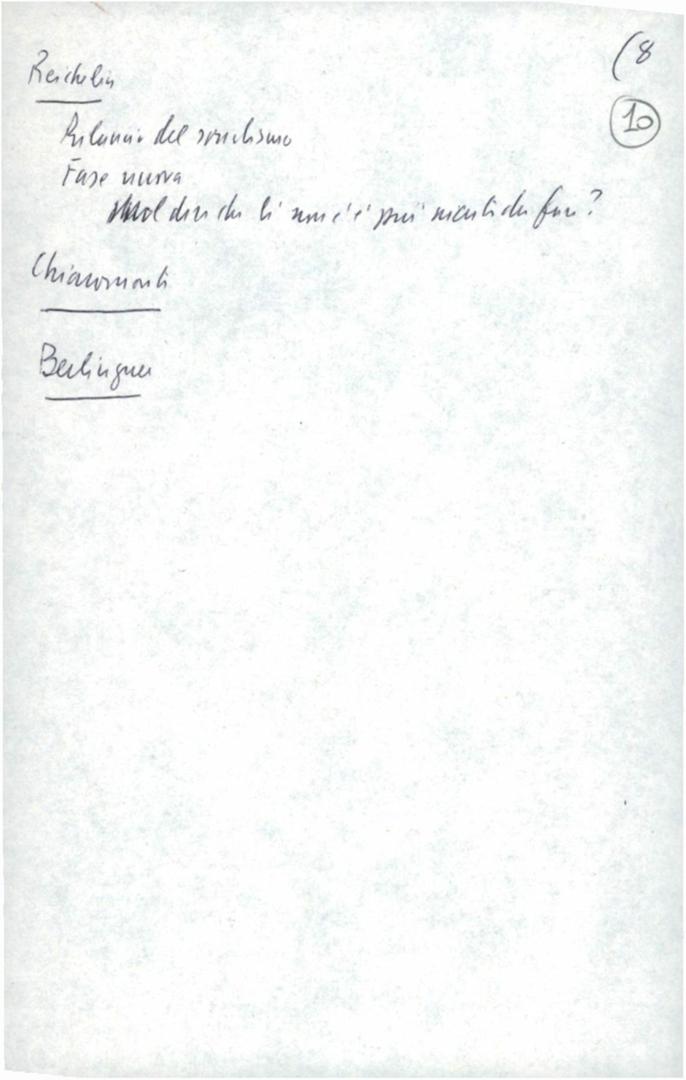 (8
10
Reichlin
Rilancio del socialismo
Fase nuova
Vuol dire che lì non c'è più niente da fare?
Chiaromonte
Berlinguer